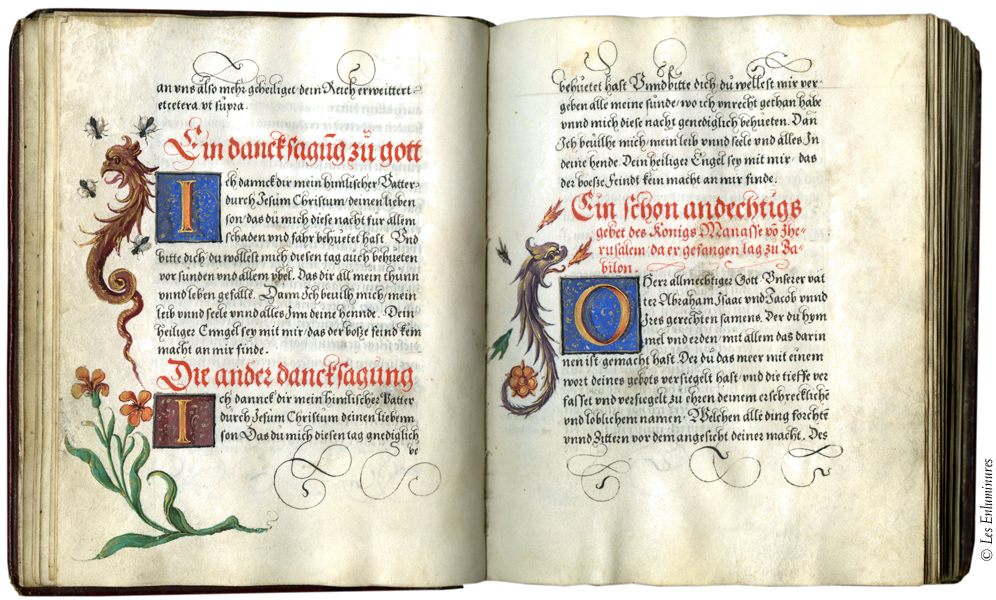 an vns also mehr geheiliget dein Reich erweittert
etcetera. vt supra.
Ein dancksagūg zů gott
Ich dannck dir mein himlischer Vatter
durch Jesum Christum deinen lieben
son das du mich diese nacht fur allem
schaden vnd fahr behuetet hast. Vnd
bitte dich du wollest mich diesen tag auch behueten
vor sunden vnd allem vbel. Das dir all mein thunn
vnnd leben gefalle. Dann Ich beuilh mich mein
leib vnnd seele vnnd alles Inn deine hennde. Dein
heiliger Enngel sey mit mir das der boße feind kein
macht an mir finde.
Die ander dancksagung
Ich danck dir mein himlischer Vatter
durch Jesum Christum deinen liebenn
son Das du mich diesen tag gnediglich
be
behuetet hast Vnnd bitte dich du wellest mir ver-
geben alle meine sunde wo ich vnrecht gethan habe
vnnd mich diese nacht genediglich behueten. Dan
Ich beuilhe mich mein leib vnnd seele vnd alles In
deine hende. Dein heiliger Engel sey mit mir das
der boeße Feindt kein macht an mir finde.
Ein schon andechtigs
gebet des Konigs Manasse vō Jhe-
rusalem da er gefangen lag zu Ba-
bilon.
O Herr allmechtiger Gott Vnserer vat
ter Abraham Isaac vnd Jacob vnnd
Ires gerechten samens. Der du hym
mel vnd erden mit allem das darin
nen ist gemacht hast. Der du das meer mit einem
wort deines gebots versiegelt hast vnd die tieffe ver
fasset vnd versiegelt zu ehren deinem erschrecklichē
vnd loblichem namen. Welchen alle ding forchtē
vnnd Zittern vor dem angesicht deiner macht. Des
© Les Enluminures